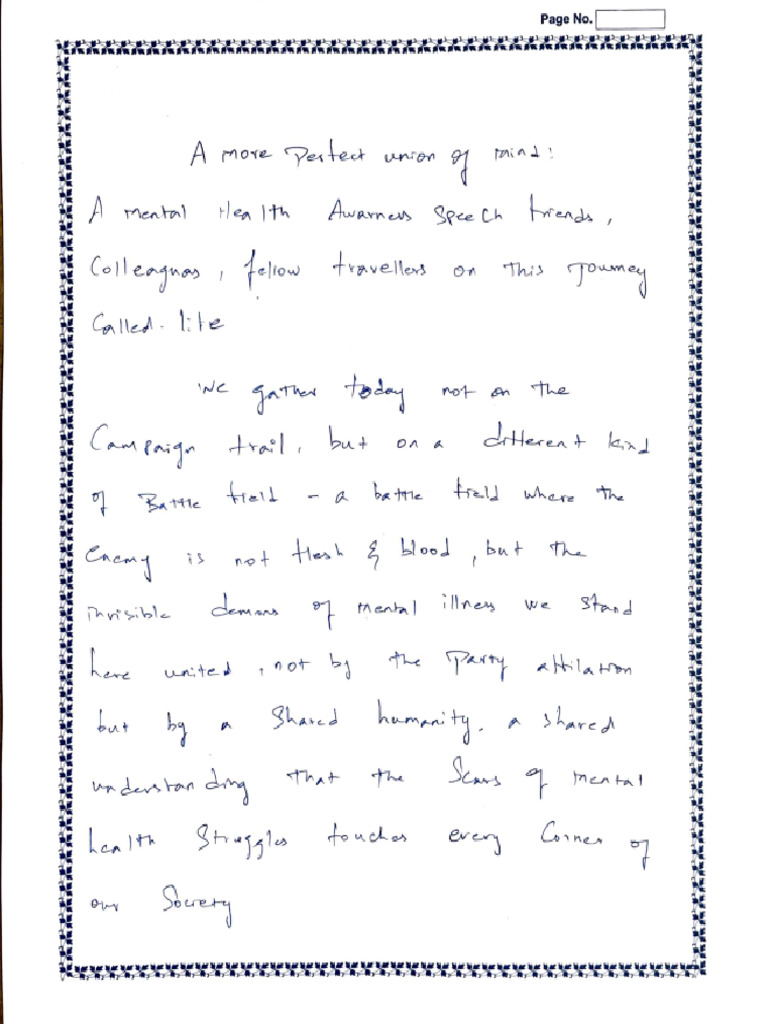 Page No.
A more Perfect union of mind:
A mental Health Awarness Speech friends,
Colleagnas, fellow travellers on This Journey
Called. life
We gather today not on the
Campaign trail, but on a different kind
of Battle field - a battle field where the
Enemy is not flesh & blood, but the
invisible demons of mental illness we stand
here united, not by the Party affilation
but by a Shared humanity. a shared
understanding that the Scars of mental
health Struggles touches every Corner of
our Society